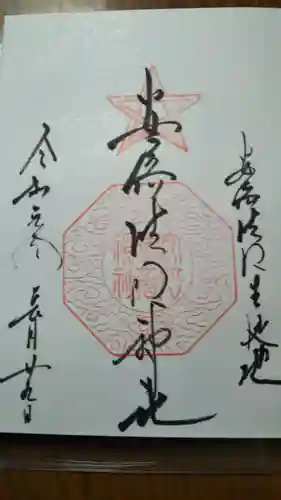 安倍晴明生誕地
安倍晴明神社
令和元年
長月廿九日